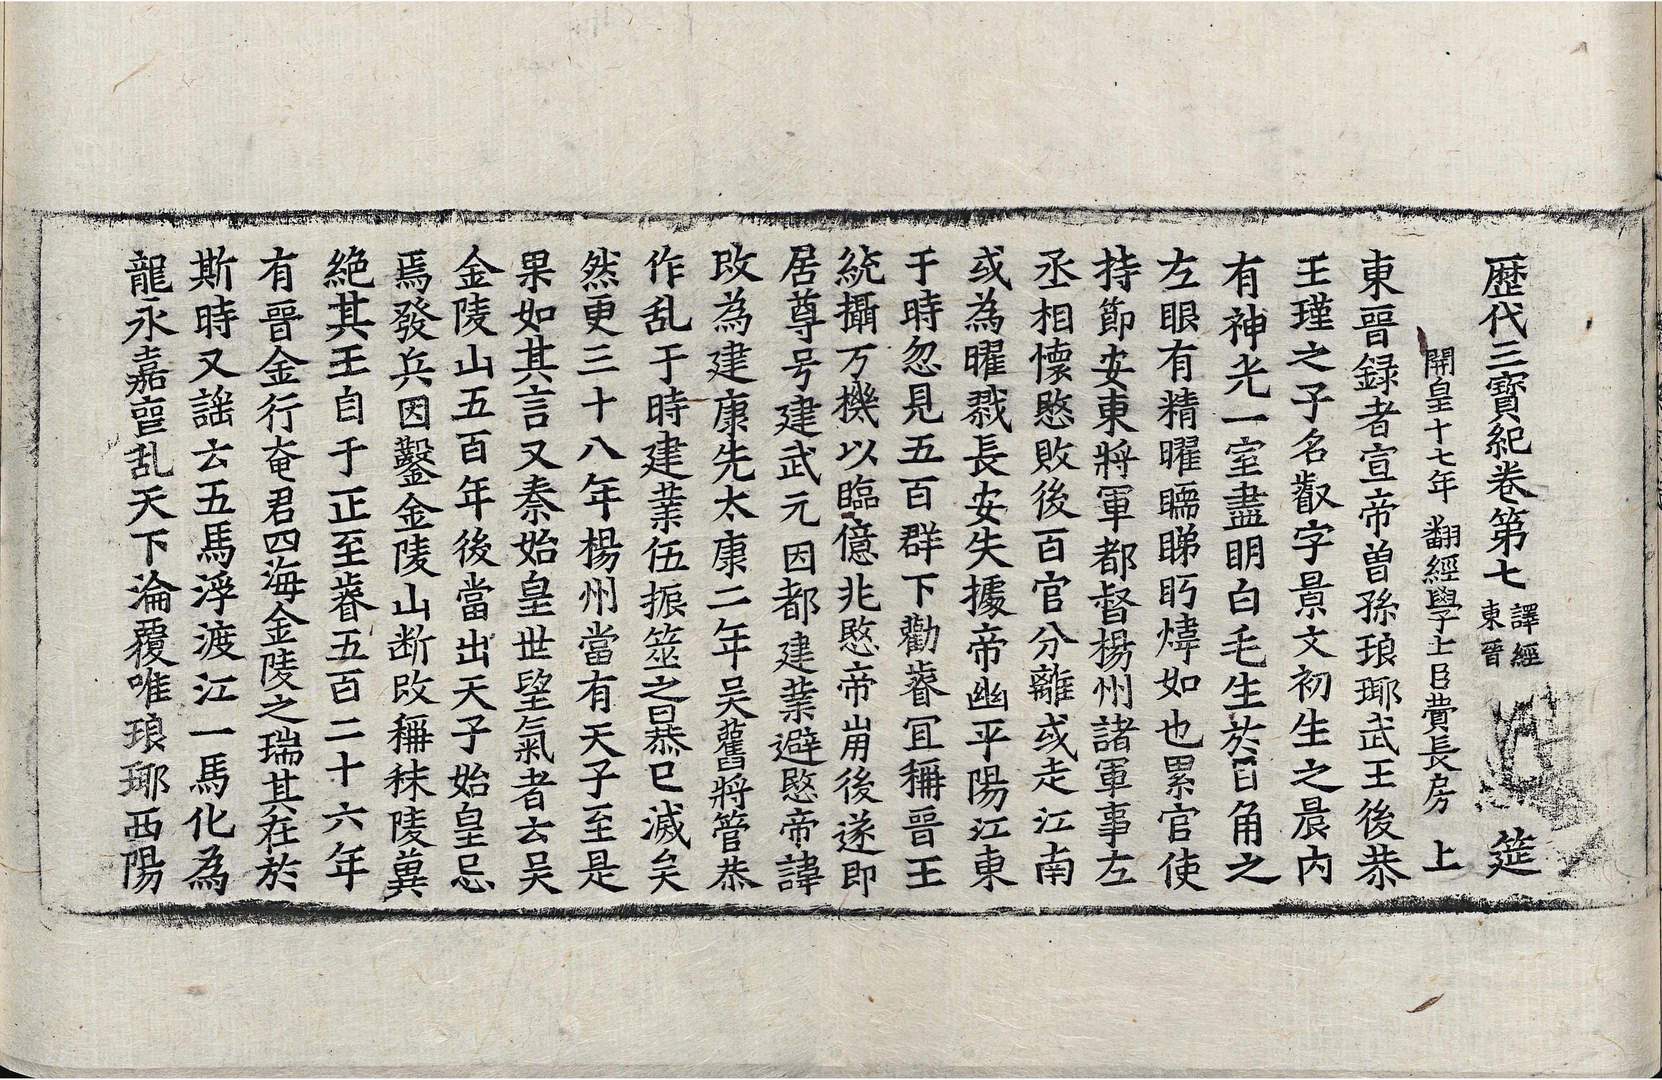 歷代三寶紀卷第七 譯經東晉 筵
開皇十七年翻經學士臣費長房上
東晉録者宣帝曽孫琅瑘武王後恭
王瑾之子名叡字景文初生之晨内
有神光一室盡明白毛生於日角之
左眼有精曜矋睇眄煒如也累官使
持節安東將軍都督楊州諸軍事左
丞相懷愍敗後百官分離或走江南
或為曜戮長安失據帝幽平陽江東
于時忽見五百群下勸睿宜稱晉王
統攝万機以臨億兆愍帝崩後遂即
居尊号建武元因都建業避愍帝諱
改為建康先太康二年吳舊將管恭
作乱于時建業伍振筮之曰恭已滅矣
然更三十八年楊州當有天子至是
果如其言又秦始皇世望氣者云吳
金陵山五百年後當出天子始皇忌
焉發兵因鑿金陵山断改稱秣陵冀
絶其王自于正至睿五百二十六年
有晉金行奄君四海金陵之瑞其在於
斯時又謡云五馬浮渡江一馬化為
龍永嘉䘮乱天下淪覆唯琅瑘西陽